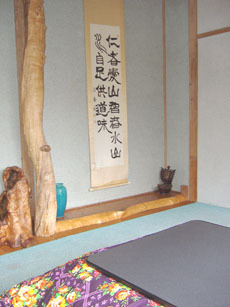 仁者愛山智者水山
水自足供道味